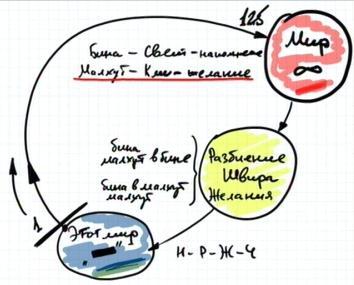 125
Бина - Свет - наполнение
Малхут - Кли - желание
Мир
∞
бина
малхут в бине
бина в малхут
малхут
Разбиение
Швира
Желания
1
Этот мир
Н - Р - Ж - Ч